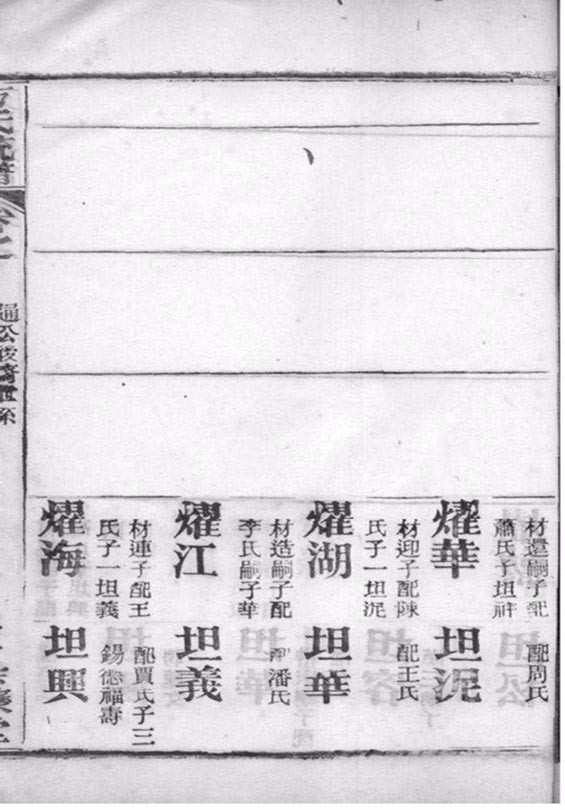 材還嗣子配
蕭氏子坦祥
燿華
材迎子配陳
氏子一坦泥
燿湖
材造嗣子配
李氏嗣子華
燿江
材連子配王
氏子一坦義
燿海
配周氏
坦泥
配王氏
坦華
配潘氏
坦義
配賈氏子三
錫德福壽
坦興
氏統譜
卷之
公後裔世系